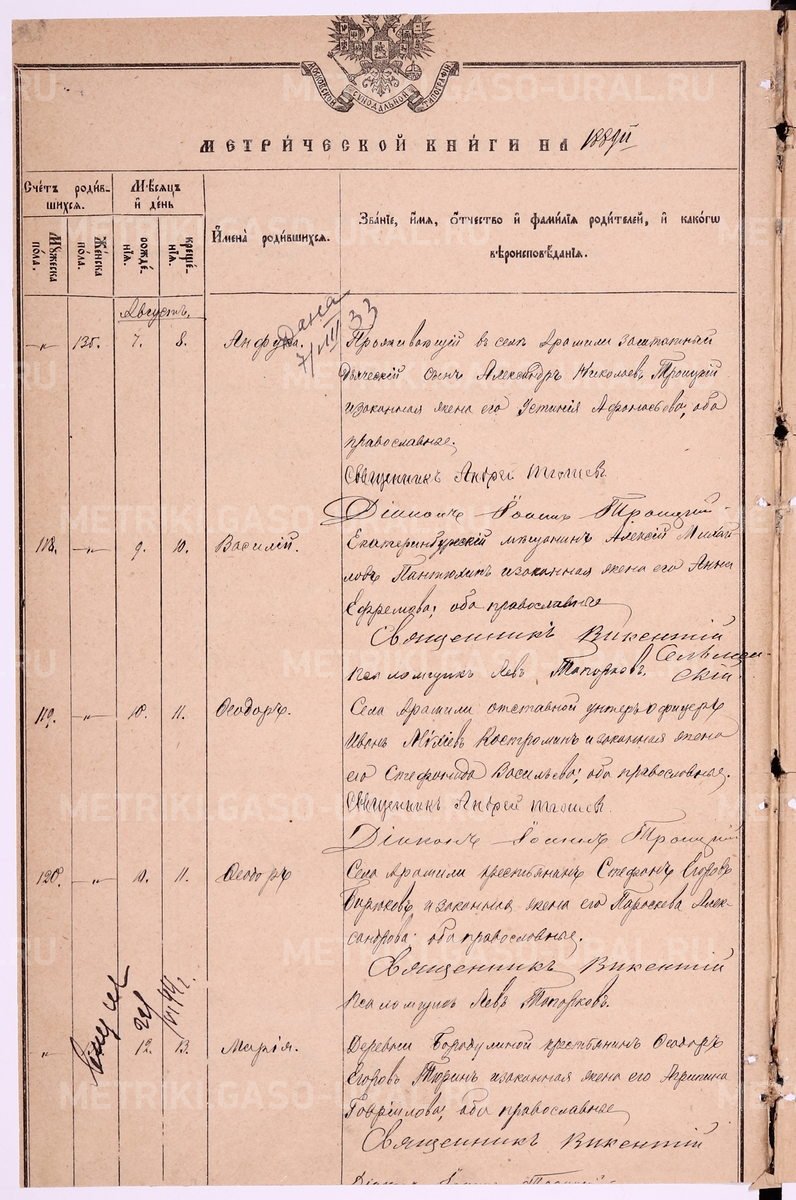 МОСКОВСКОЙ СѴНОДАЛЬНОЙ ТИПОГРАФІИ
МЕТРИ́ЧЕСКОЙ КНИ́ГИ НА 1889
Сче́тъ роди́вшихся.
Мѣ́сяцъ и́ де́нь
И҆мена̀ роди́вшихся.
Зва́нїе, и҆́мя, ѻ҆́тчество и҆ фами́лїя роди́телей, и҆ како́гѡ вѣроисповѣ́данїя.
Мꙋ́жеска по́ла.
Же́нска по́ла.
рожде́нїя.
креще́нїя.
Августъ.
дана
7/VIII 33
—„— 136. 7. 8. Анфуса. Проживающій въ селѣ Арамили заштатный
дьяческій сынъ Александръ Николаевъ Троицкій
и законная жена его Устинія Афонасьева, оба
православные.
Священникъ Андрей
Діаконъ Іоаннъ Троицкій
118. —„— 9. 10. Василій. Екатеринбургскій мѣщанинъ Алексій Михай
ловъ Пантюхинъ и законная жена его Анна
Ефремова; оба православные
Священникъ Викентій
Псаломщикъ Левъ Топорковъ.
119. —„— 10. 11. Ѳеодоръ. Села Арамили отставной унтеръ-офицеръ
Иванъ Костроминъ и законная жена
его Стефанида Васильева; оба православные.
Священникъ Андрей
Діаконъ Іоаннъ Троицкій
120. —„— 10. 11. Ѳеодоръ Села Арамили крестьянинъ Стефанъ Егоровъ
Бирюковъ и законная жена его Параскева Алек-
сандрова: оба православные.
Священникъ Викентій
Псаломщикъ Левъ Топорковъ.
„ 12. 13. Марія. Деревни Бородулиной крестьянинъ Ѳеодоръ
Егоровъ Тюринъ и законная жена его Агрипина
Гавріилова; оба православные
Священникъ Викентій
METRIKI.GASO-URAL.RU